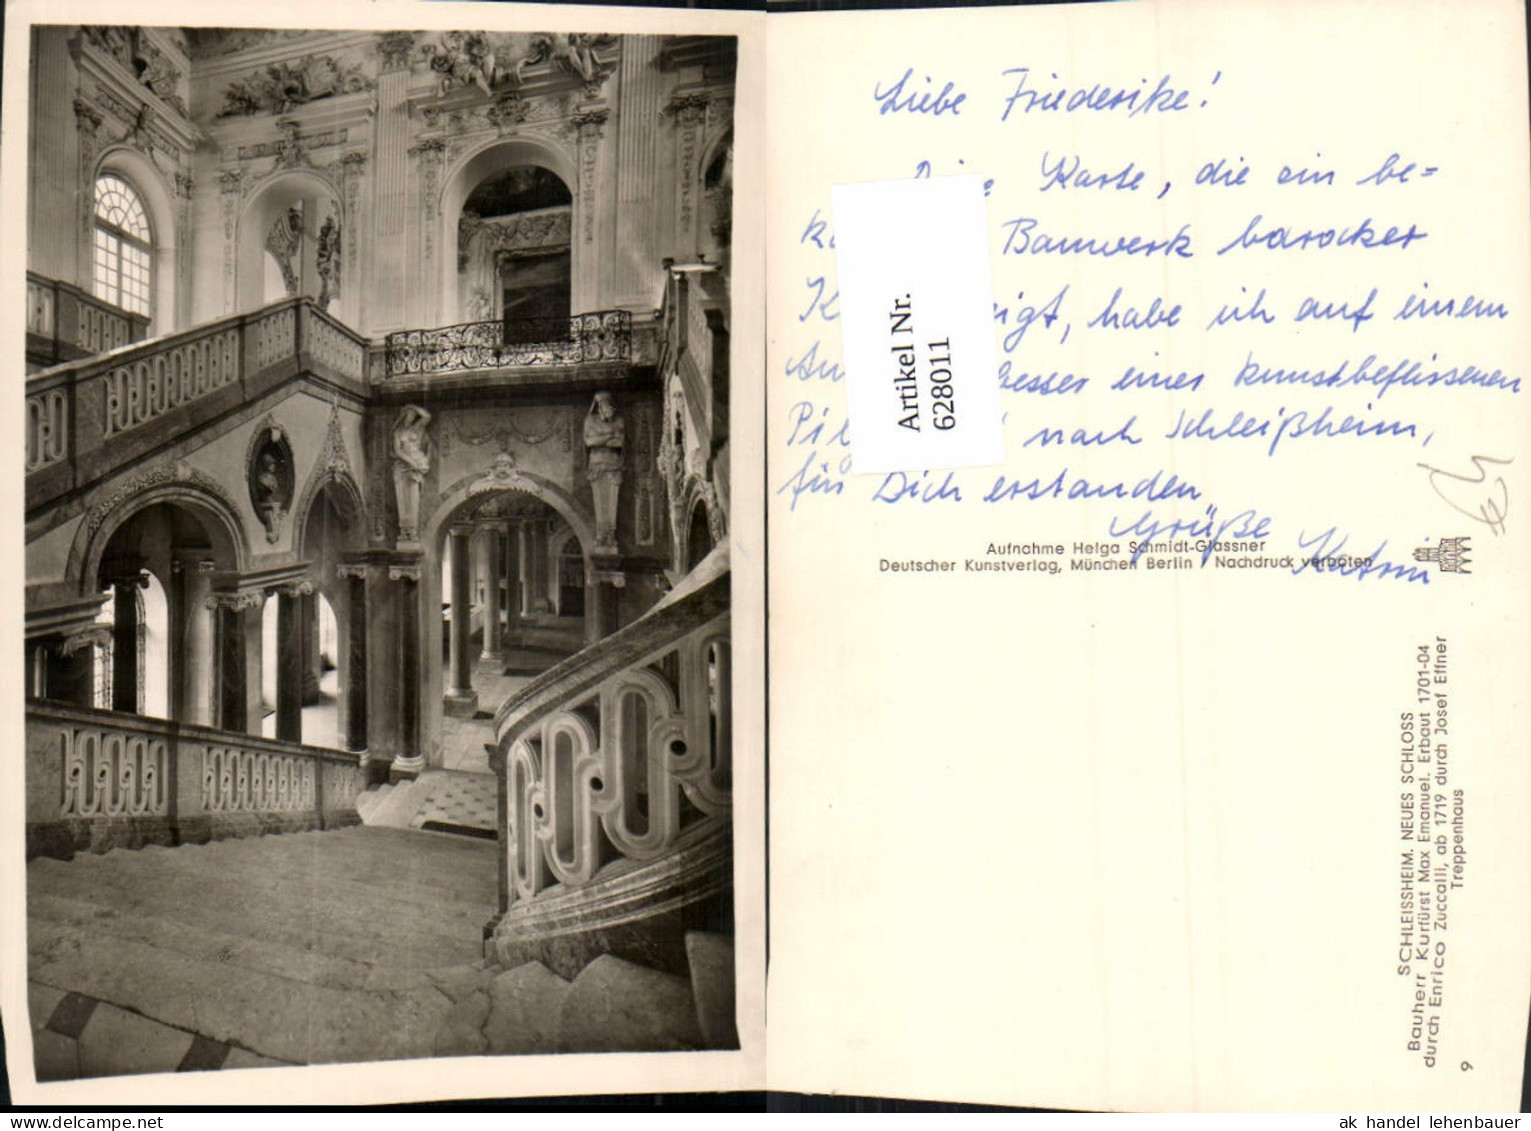 Liebe Friederike!
Karte, die ein be=
Bauwerk barocker
eigt, habe ich auf einem
besser einer kunstbeflissenen
Pil nach Schleißheim,
für Dich erstanden
Grüße Katrin
Artikel Nr.
628011
Aufnahme Helga Schmidt-Glassner
Deutscher Kunstverlag, München Berlin / Nachdruck verboten
SCHLEISSHEIM. NEUES SCHLOSS
Bauherr Kurfürst Max Emanuel. Erbaut 1701-04
durch Enrico Zuccalli, ab 1719 durch Josef Effner
Treppenhaus
9
ak handel lehenbauer